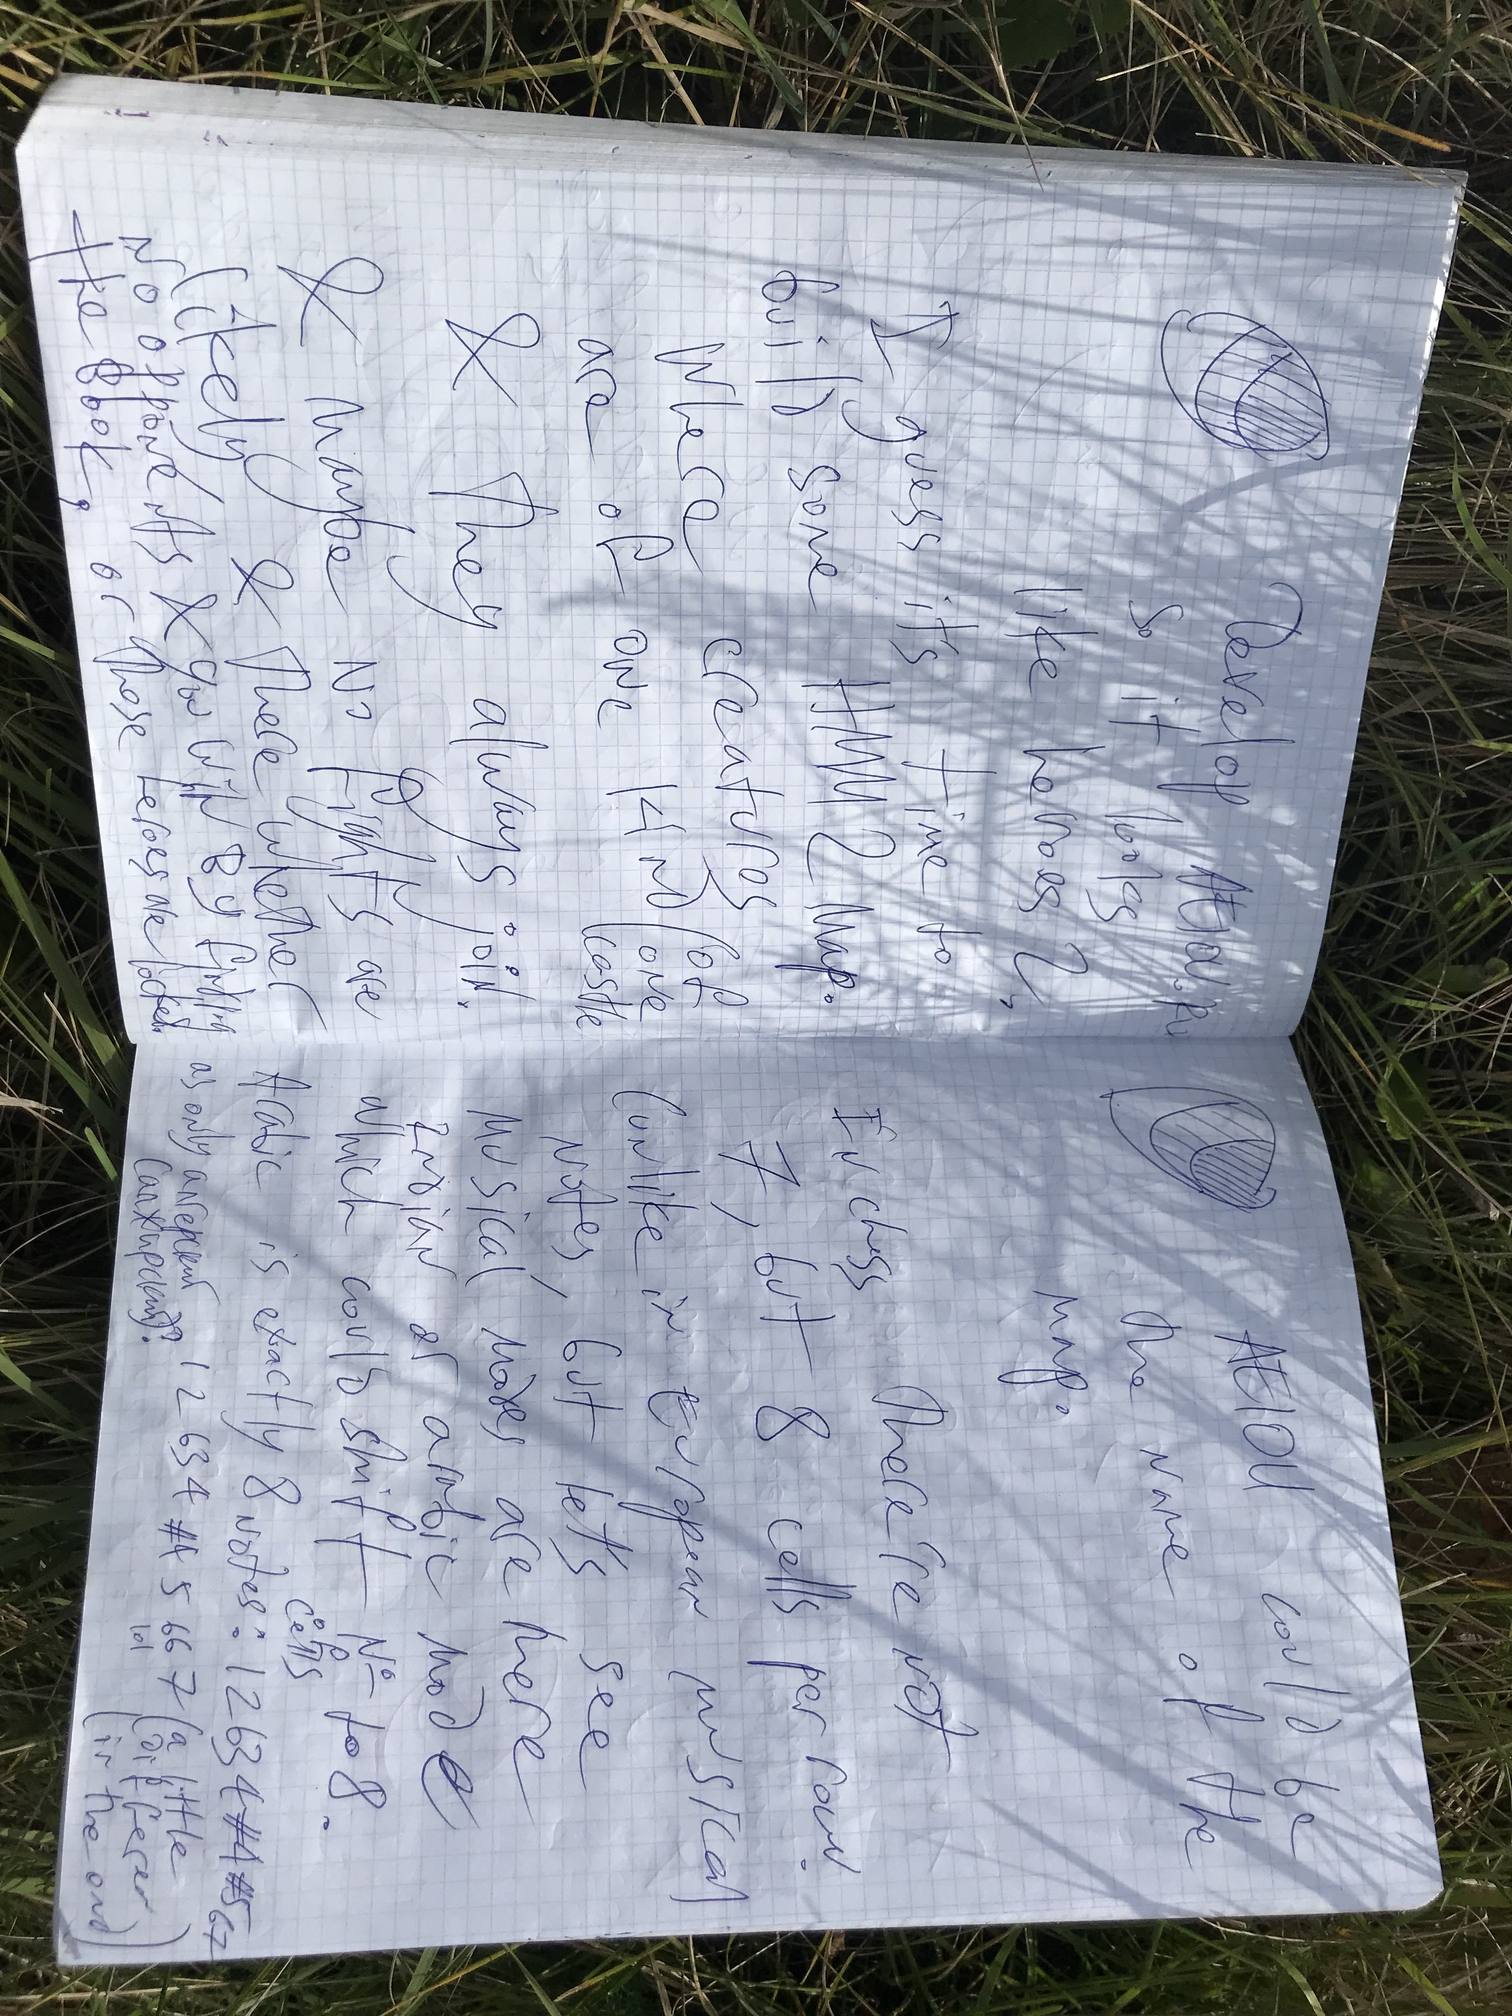 Develop AEIOU.R
so it looks
like heroes 2,
I guess it's time to
build some HMM2 map.
Where creatures (of
are of one kind (one
castle
& They always join.
& maybe no fights are
likely & there whether
no opponents & you win by finding
the book, or those heroes are locked.
AEIOU could be
the name of the
map.
In chess there're not
7, but 8 cells per row.
(unlike in European musical
notes, but let's see
musical modes are here
Indian or arabic mode
which could shift № to 8.
of cells
Arabic is exactly 8 notes: 1 2 б3 4 #4 #5 б7
as only 1 2 б3 4 #4 5 б6 7 (a little
lol (different
(in the end)